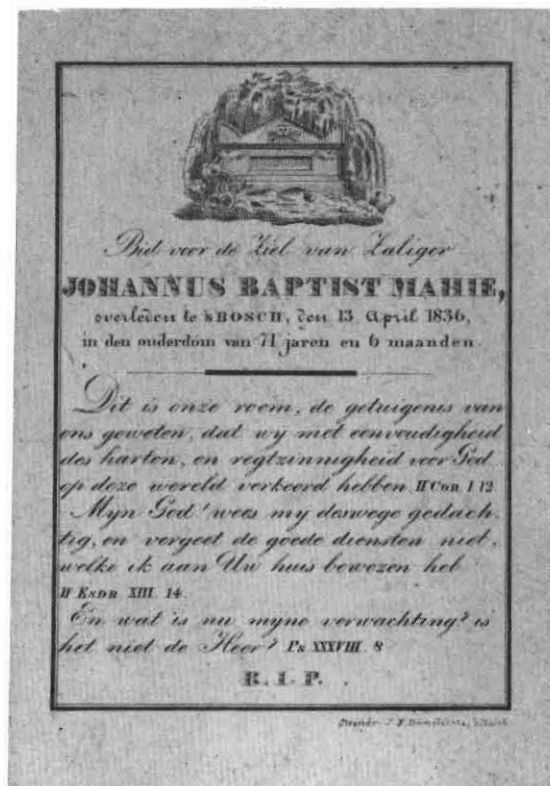 Bid voor de Ziel van Zaliger
JOHANNUS BAPTIST MAHIE,
overleden te 'sBOSCH, den 13 April 1836,
in den ouderdom van 71 jaren en 6 maanden.
Dit is onze roem, de getuigenis van
ons geweten, dat wy met eenvoudigheid
des harten, en regtzinnigheid voor God
op deze wereld verkeerd hebben II COR. I 12
Myn God! wees my deswege gedach-
tig, en vergeet de goede diensten niet,
welke ik aan Uw huis bewezen heb
II ESDR. XIII. 14.
En wat is nu myne verwachting? is
het niet de Heer? Ps. XXXVIII. 8
R. I. P.